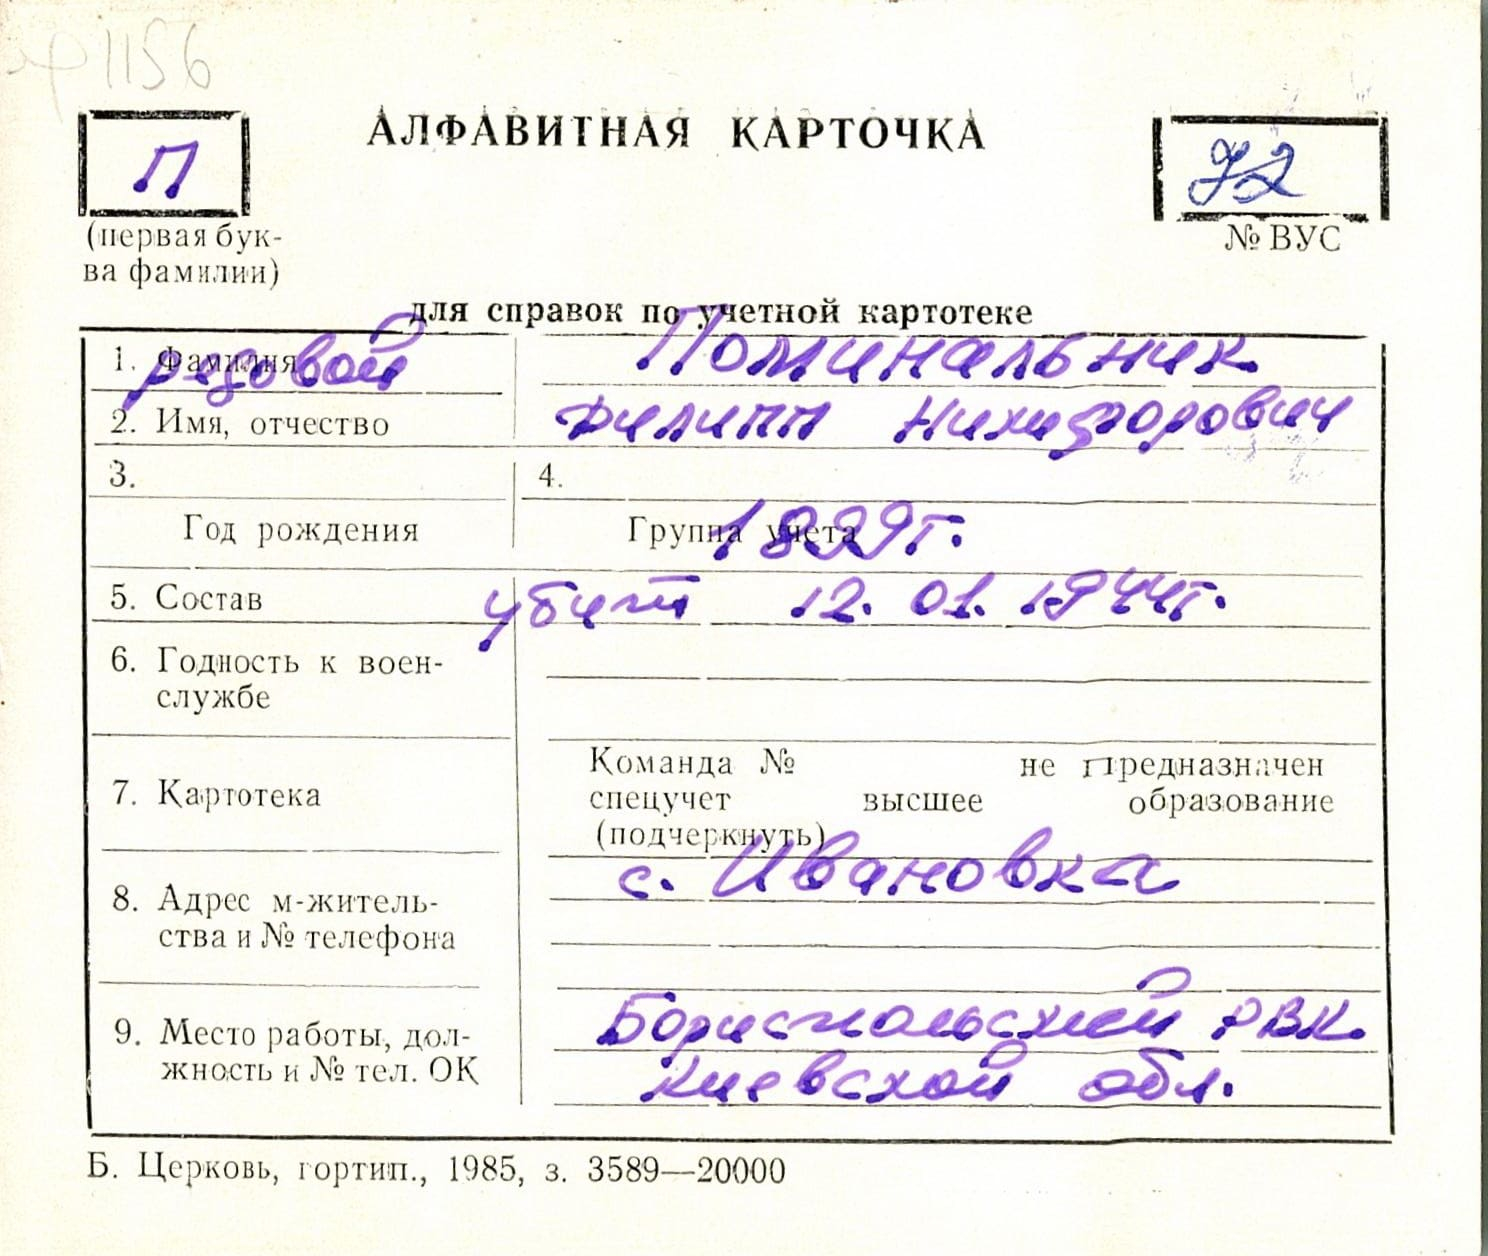 1156
П
АЛФАВИТНАЯ КАРТОЧКА
72
(первая бук-
ва фамилии)
№ ВУС
для справок по учетной картотеке
1. Фамилия рядовой Поминальник
2. Имя, отчество Филипп Никифорович
3. 4.
Год рождения Группа учета 1899г.
5. Состав убит 12.01.1944г.
6. Годность к воен-
службе
Команда № не предназначен
7. Картотека спецучет высшее образование
(подчеркнуть)
с. Ивановка
8. Адрес м-житель-
ства и № телефона
9. Место работы, дол- Бориспольский РВК
жность и № тел. ОК Киевской обл.
Б. Церковь, гортип., 1985, з. 3589—20000